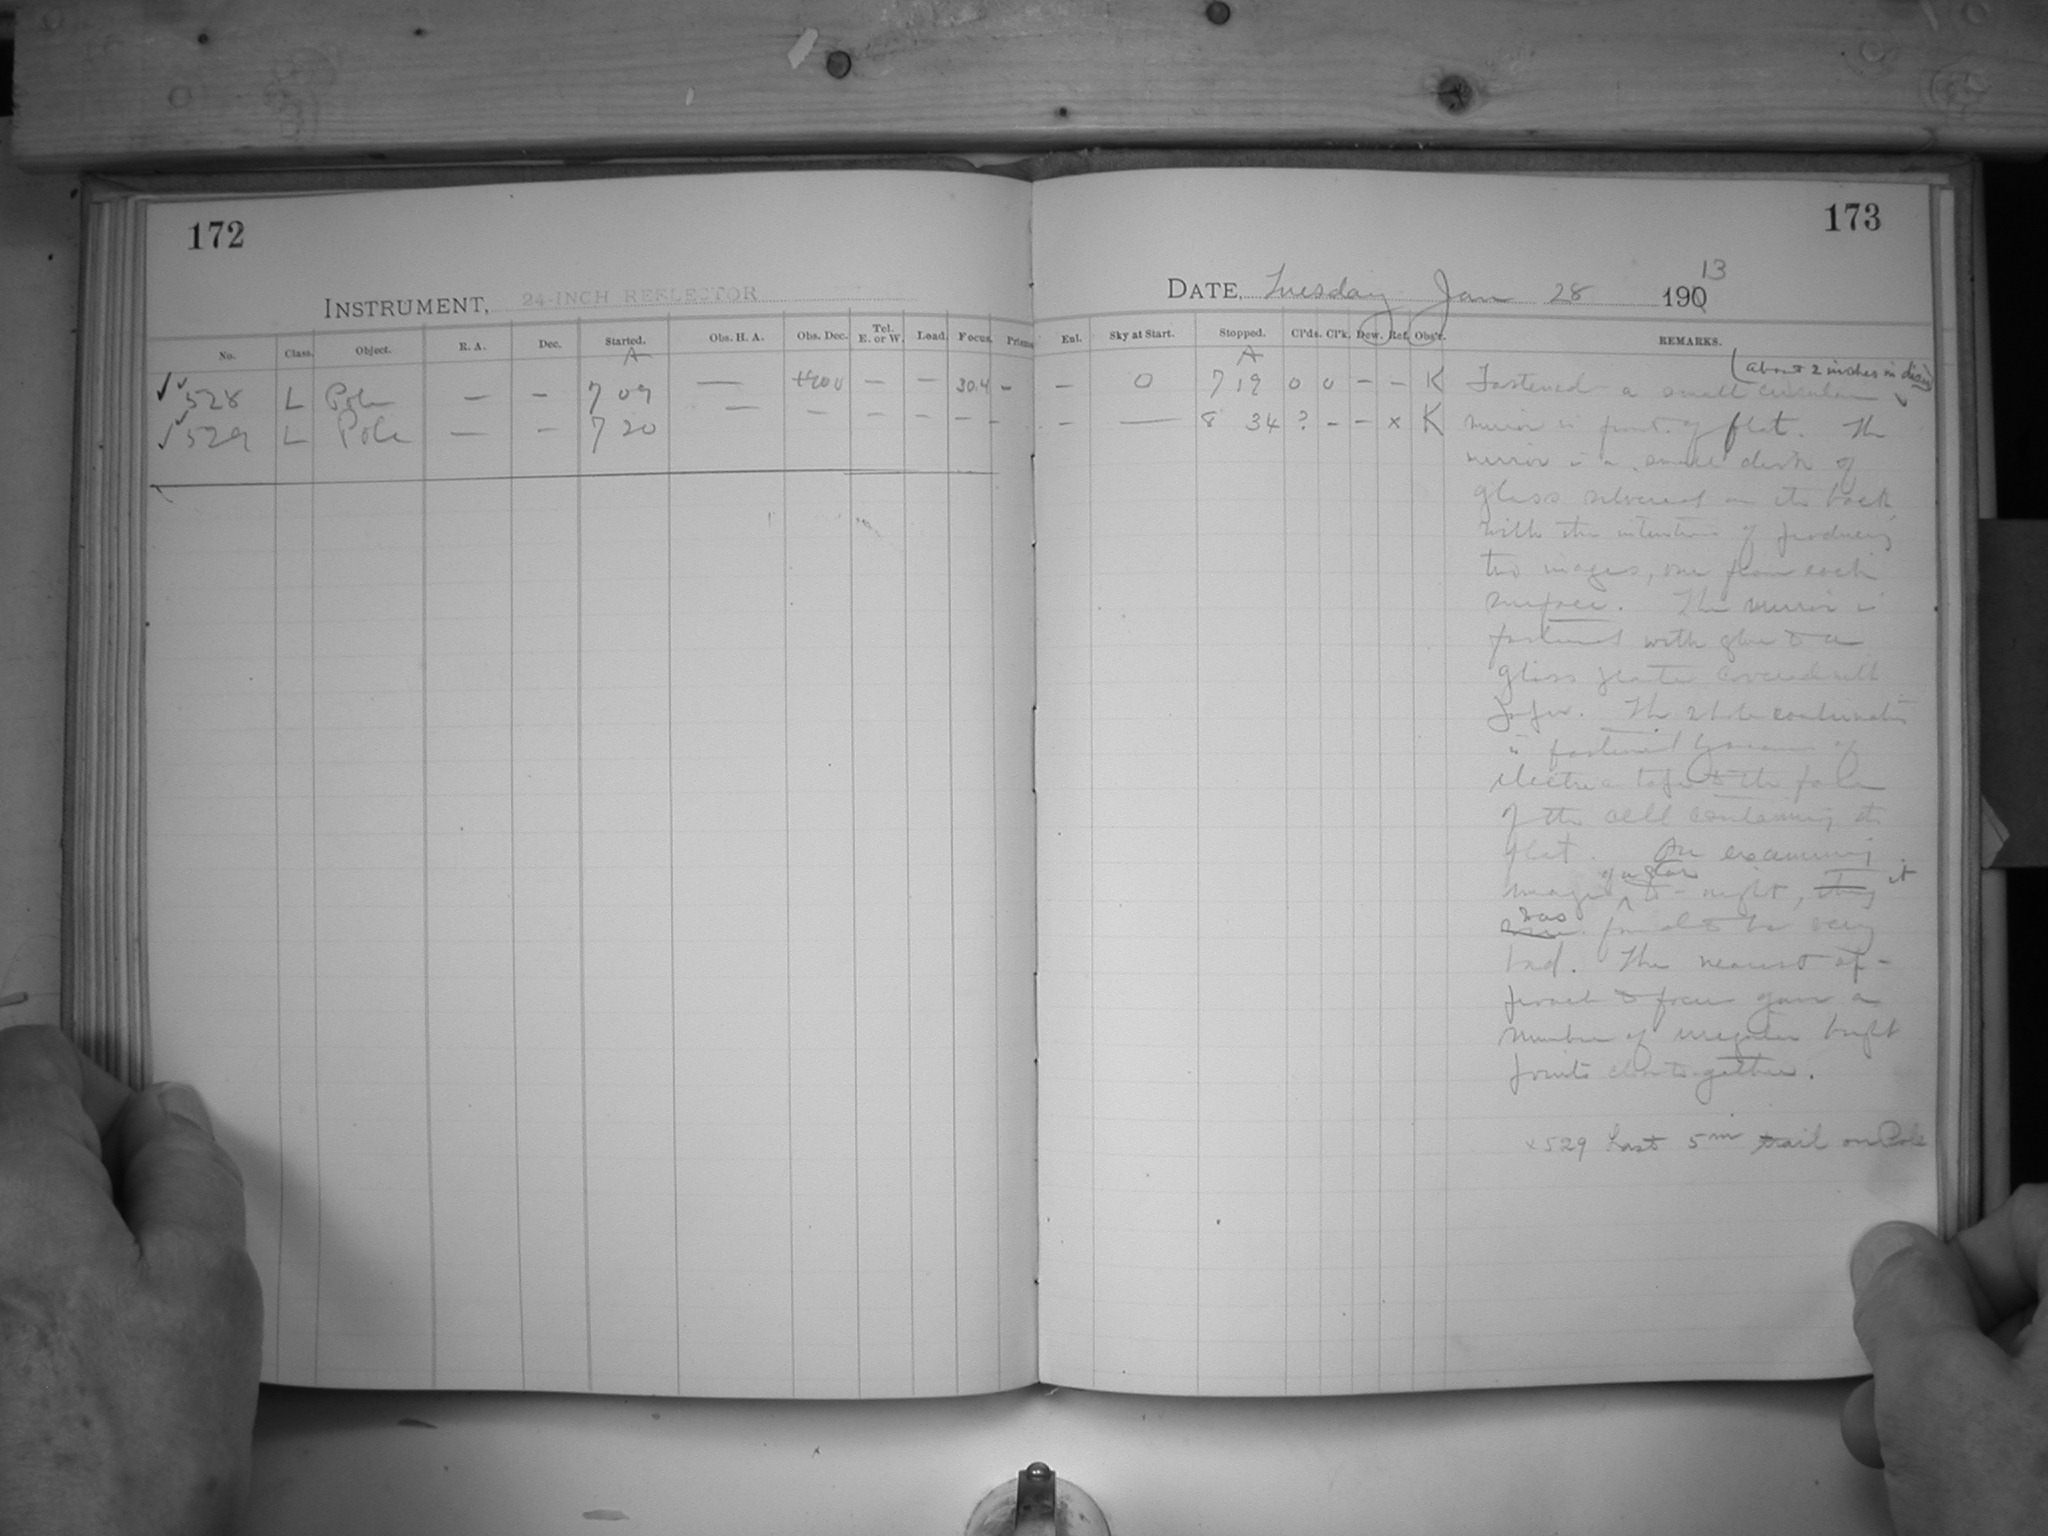 172
INSTRUMENT, 24-INCH REFLECTOR
No. Class. Object. R. A. Dec. Started. Obs. H. A. Obs. Dec. Tel. E. or W. Load. Focus. Prisms
A
✓✓528 L Pole — — 7 09 — +900 — — 30.4 —
✓✓529 L Pole — — 7 20 — — — — — —
173
DATE, Tuesday Jan 28 1913
Enl. Sky at Start. Stopped. Cl'ds. Cl'k. Dew. Ref. Obs'r. REMARKS.
A
— 0 7 19 0 0 — — K
— — 8 34 ? — — x K
(about 2 inches in
Fastened a small circular
mirror in front of flat. The
mirror is a small disk of
glass silvered on its back
with the intention of producing
two images, one from each
surface. The mirror is
fastened with glue to a
glass plate covered with
paper. The whole combination
is fastened by means of
electric tape to the
of the cell containing the
flat. On examining
image of a star to-night, they it
was found to be very
bad. The nearest ap-
proach to focus gave a
number of irregular bright
points close together.
x529 Last 5m trail on Pole